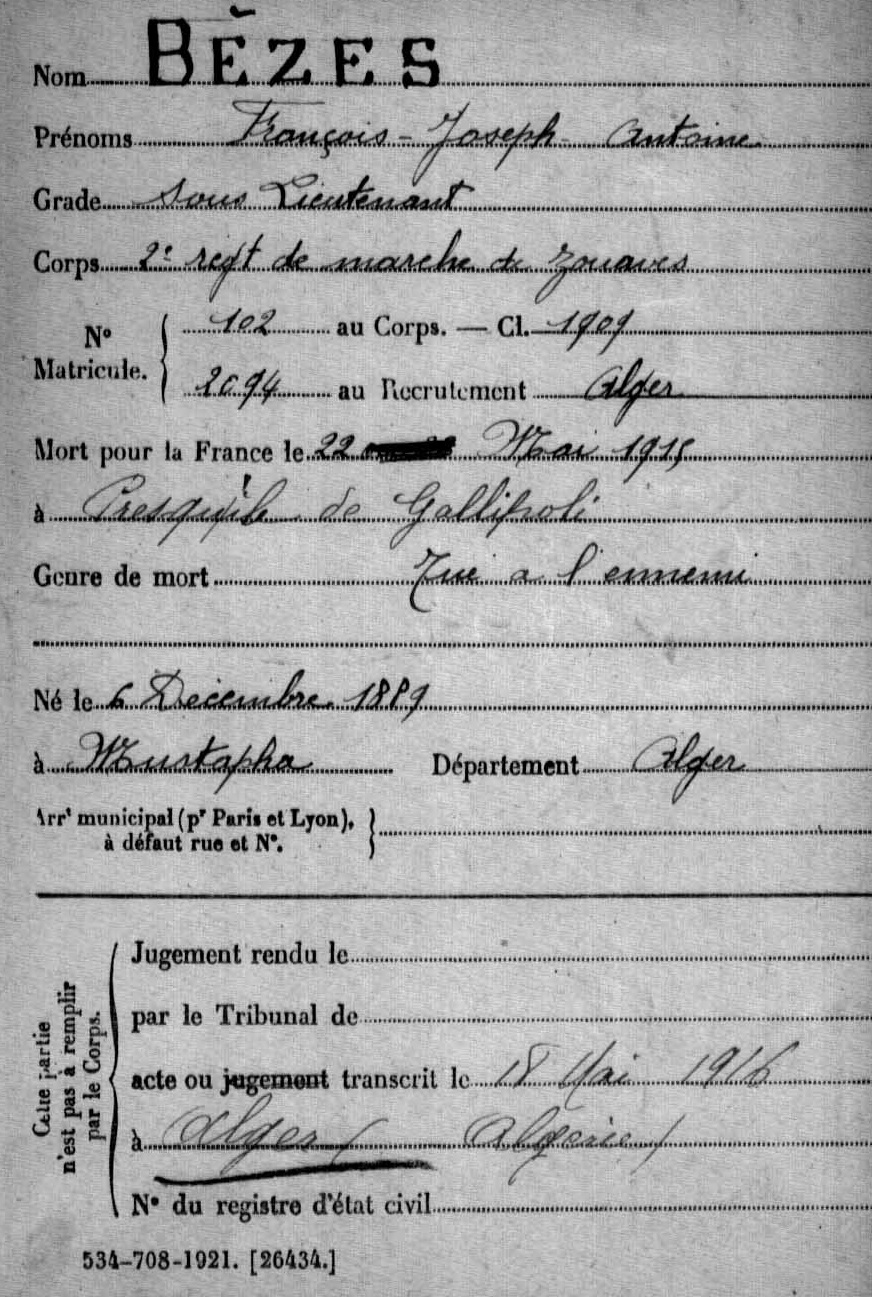 Nom BÈZES
Prénoms François - Joseph - Antoine
Grade Sous Lieutenant
Corps 2e regt de marche de zouaves
N° Matricule. 102 au Corps. — Cl. 1909
2094 au Recrutement Alger
Mort pour la France le 22 Mai 1915
à Presqu'ile de Gallipoli
Genre de mort Tué a l'ennemi
Né le 6 Décembre 1889
à Mustapha Département Alger
Arrt municipal (pr Paris et Lyon),
à défaut rue et N°.
Cette partie
n'est pas à remplir
par le Corps.
Jugement rendu le
par le Tribunal de
acte ou jugement transcrit le 18 Mai 1916
à Alger (Algérie)
N° du registre d'état civil
534-708-1921. [26434.]